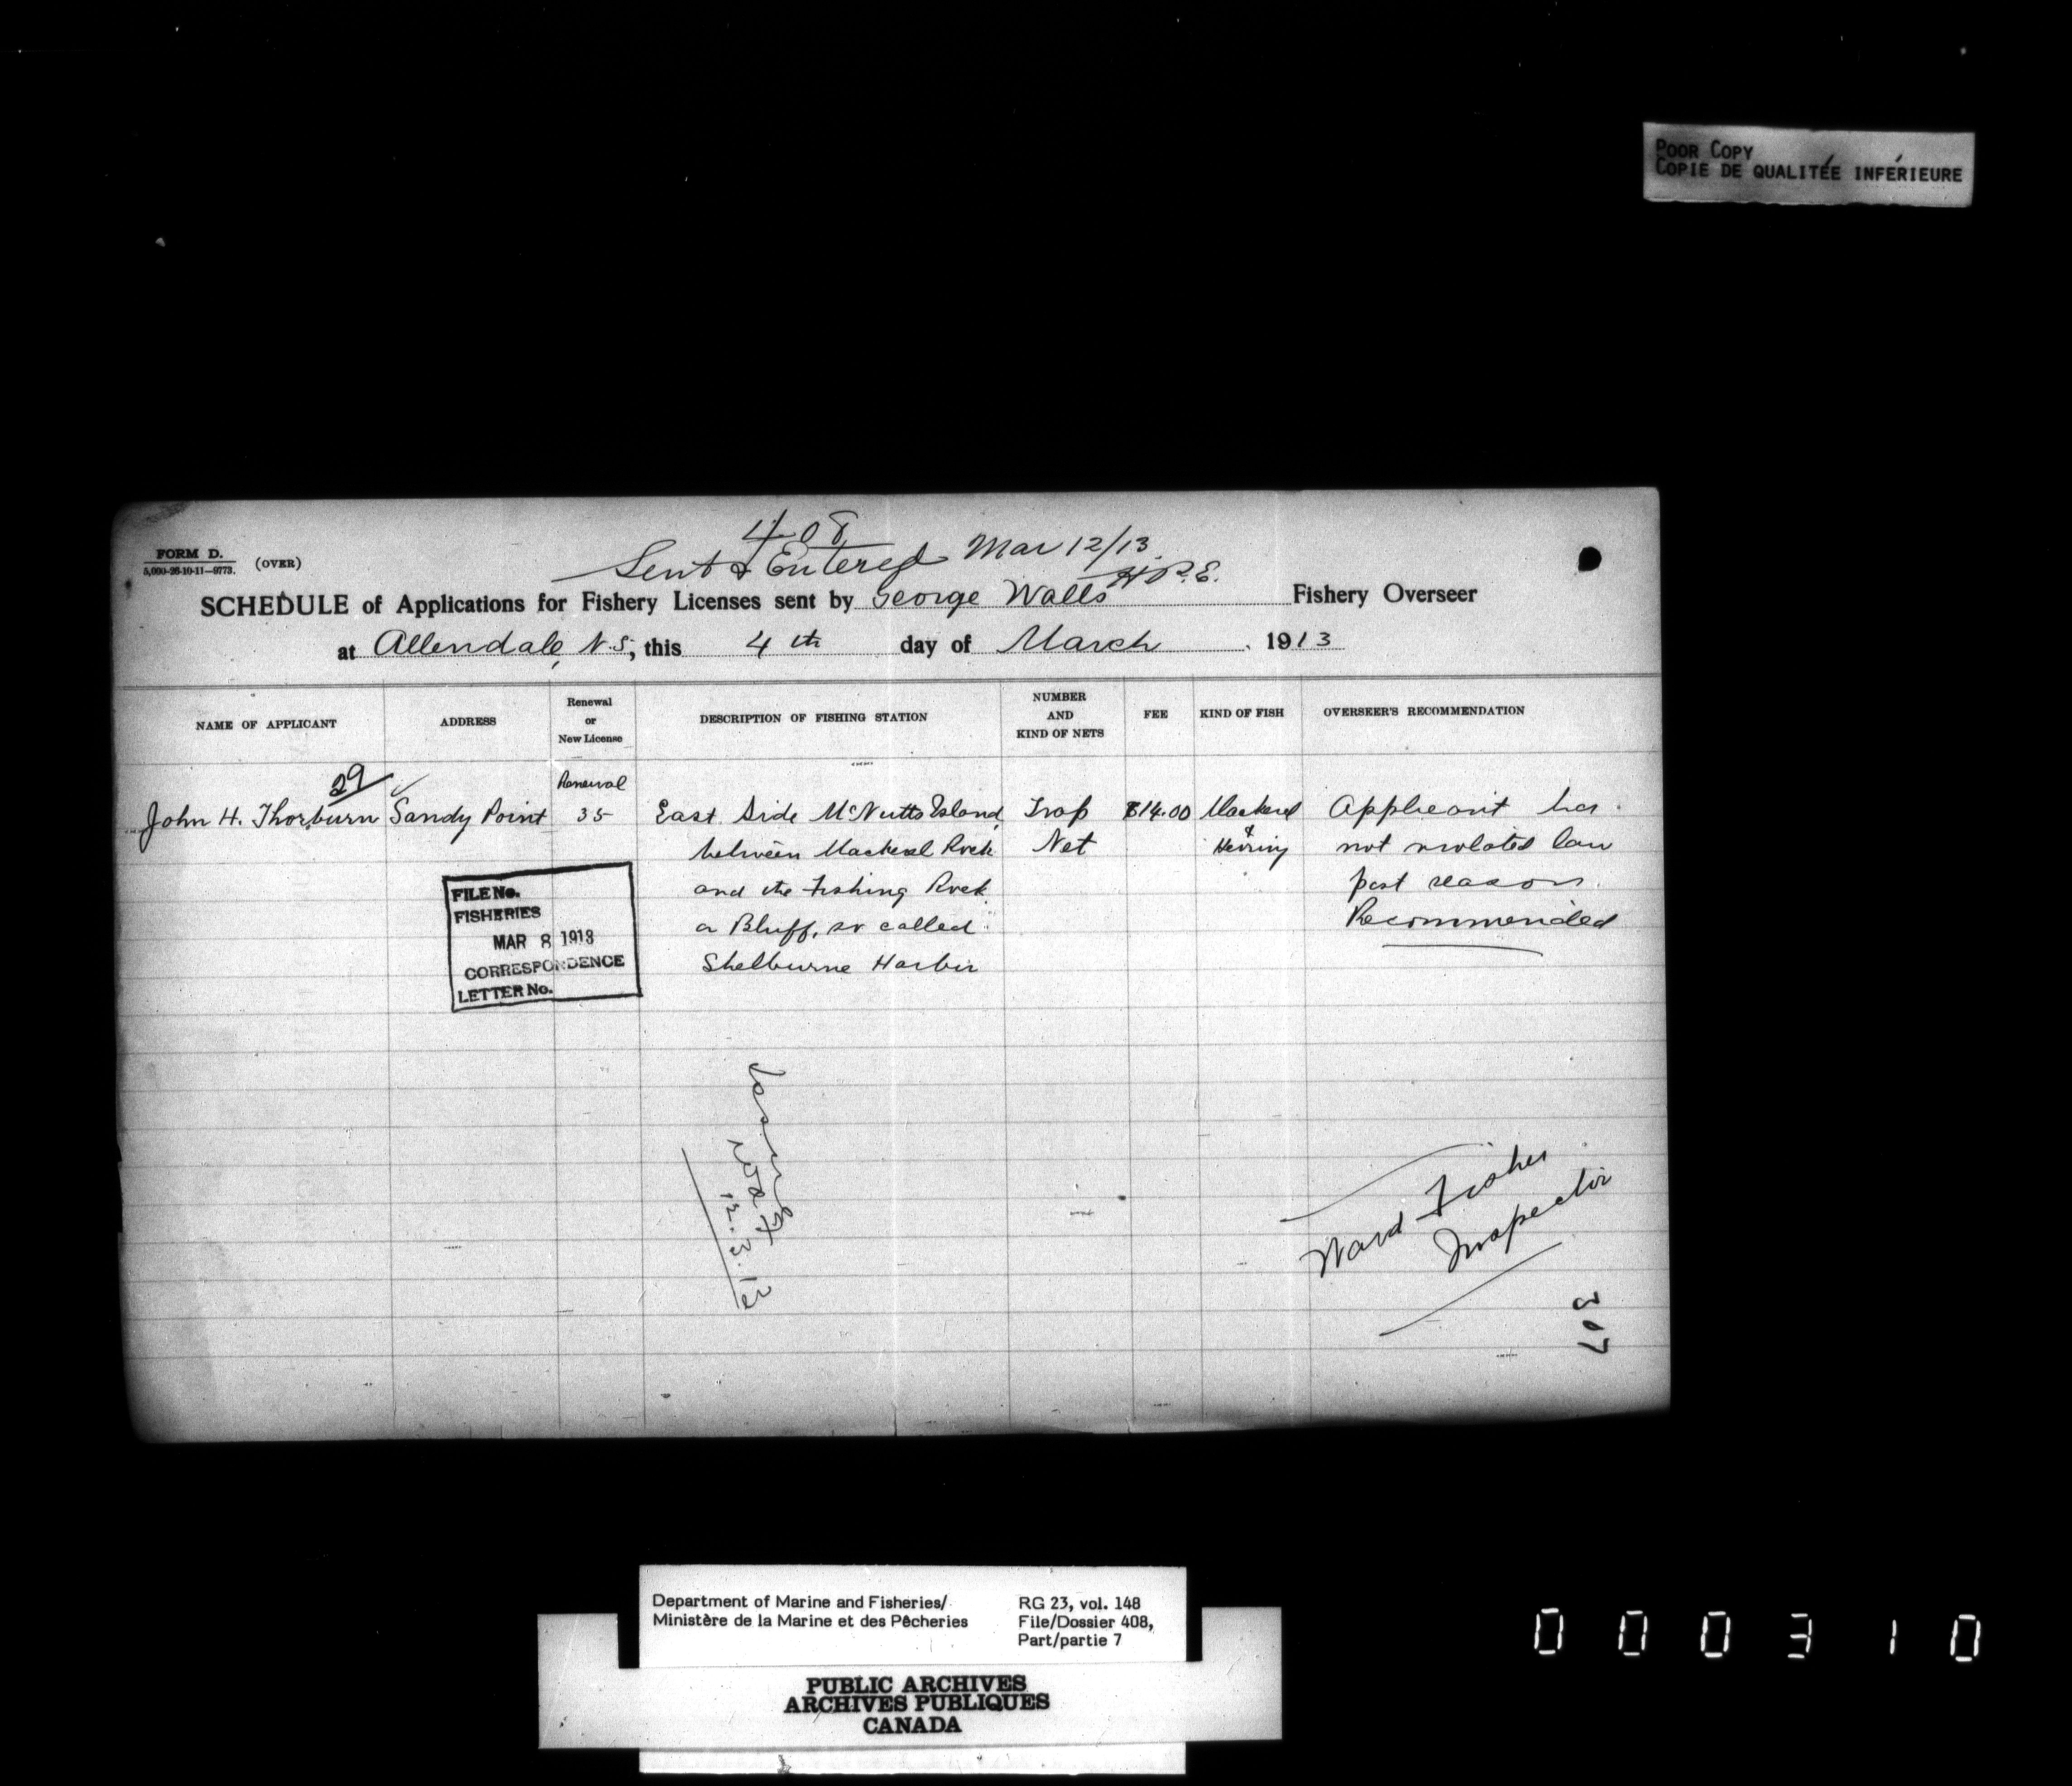 POOR COPY
COPIE DE QUALITÉE INFÉRIEURE
408
Sent & Entered Mar 12/13
H.P.E.
FORM D. (OVER)
5,000-26-10-11—9773.
SCHEDULE of Applications for Fishery Licenses sent by George Walls Fishery Overseer
at Allendale, N.S., this 4th day of March 1913
NAME OF APPLICANT ADDRESS Renewal or New License DESCRIPTION OF FISHING STATION NUMBER AND KIND OF NETS FEE KIND OF FISH OVERSEER'S RECOMMENDATION
29 Renewal
John H. Thorburn Sandy Point 35 East Side McNutts Island, Trap $14.00 Mackerel Applicant has
between Mackerel Rock Net & Herring not violated law
and the Fishing Rock past season.
a Bluff, so called Recommended
Shelburne Harbor
FILE No.
FISHERIES
MAR 8 1913
CORRESPONDENCE
LETTER No.
12.3.13
Ward Fisher
Inspector
307
Department of Marine and Fisheries/
Ministère de la Marine et des Pêcheries
RG 23, vol. 148
File/Dossier 408,
Part/partie 7
PUBLIC ARCHIVES
ARCHIVES PUBLIQUES
CANADA
000310